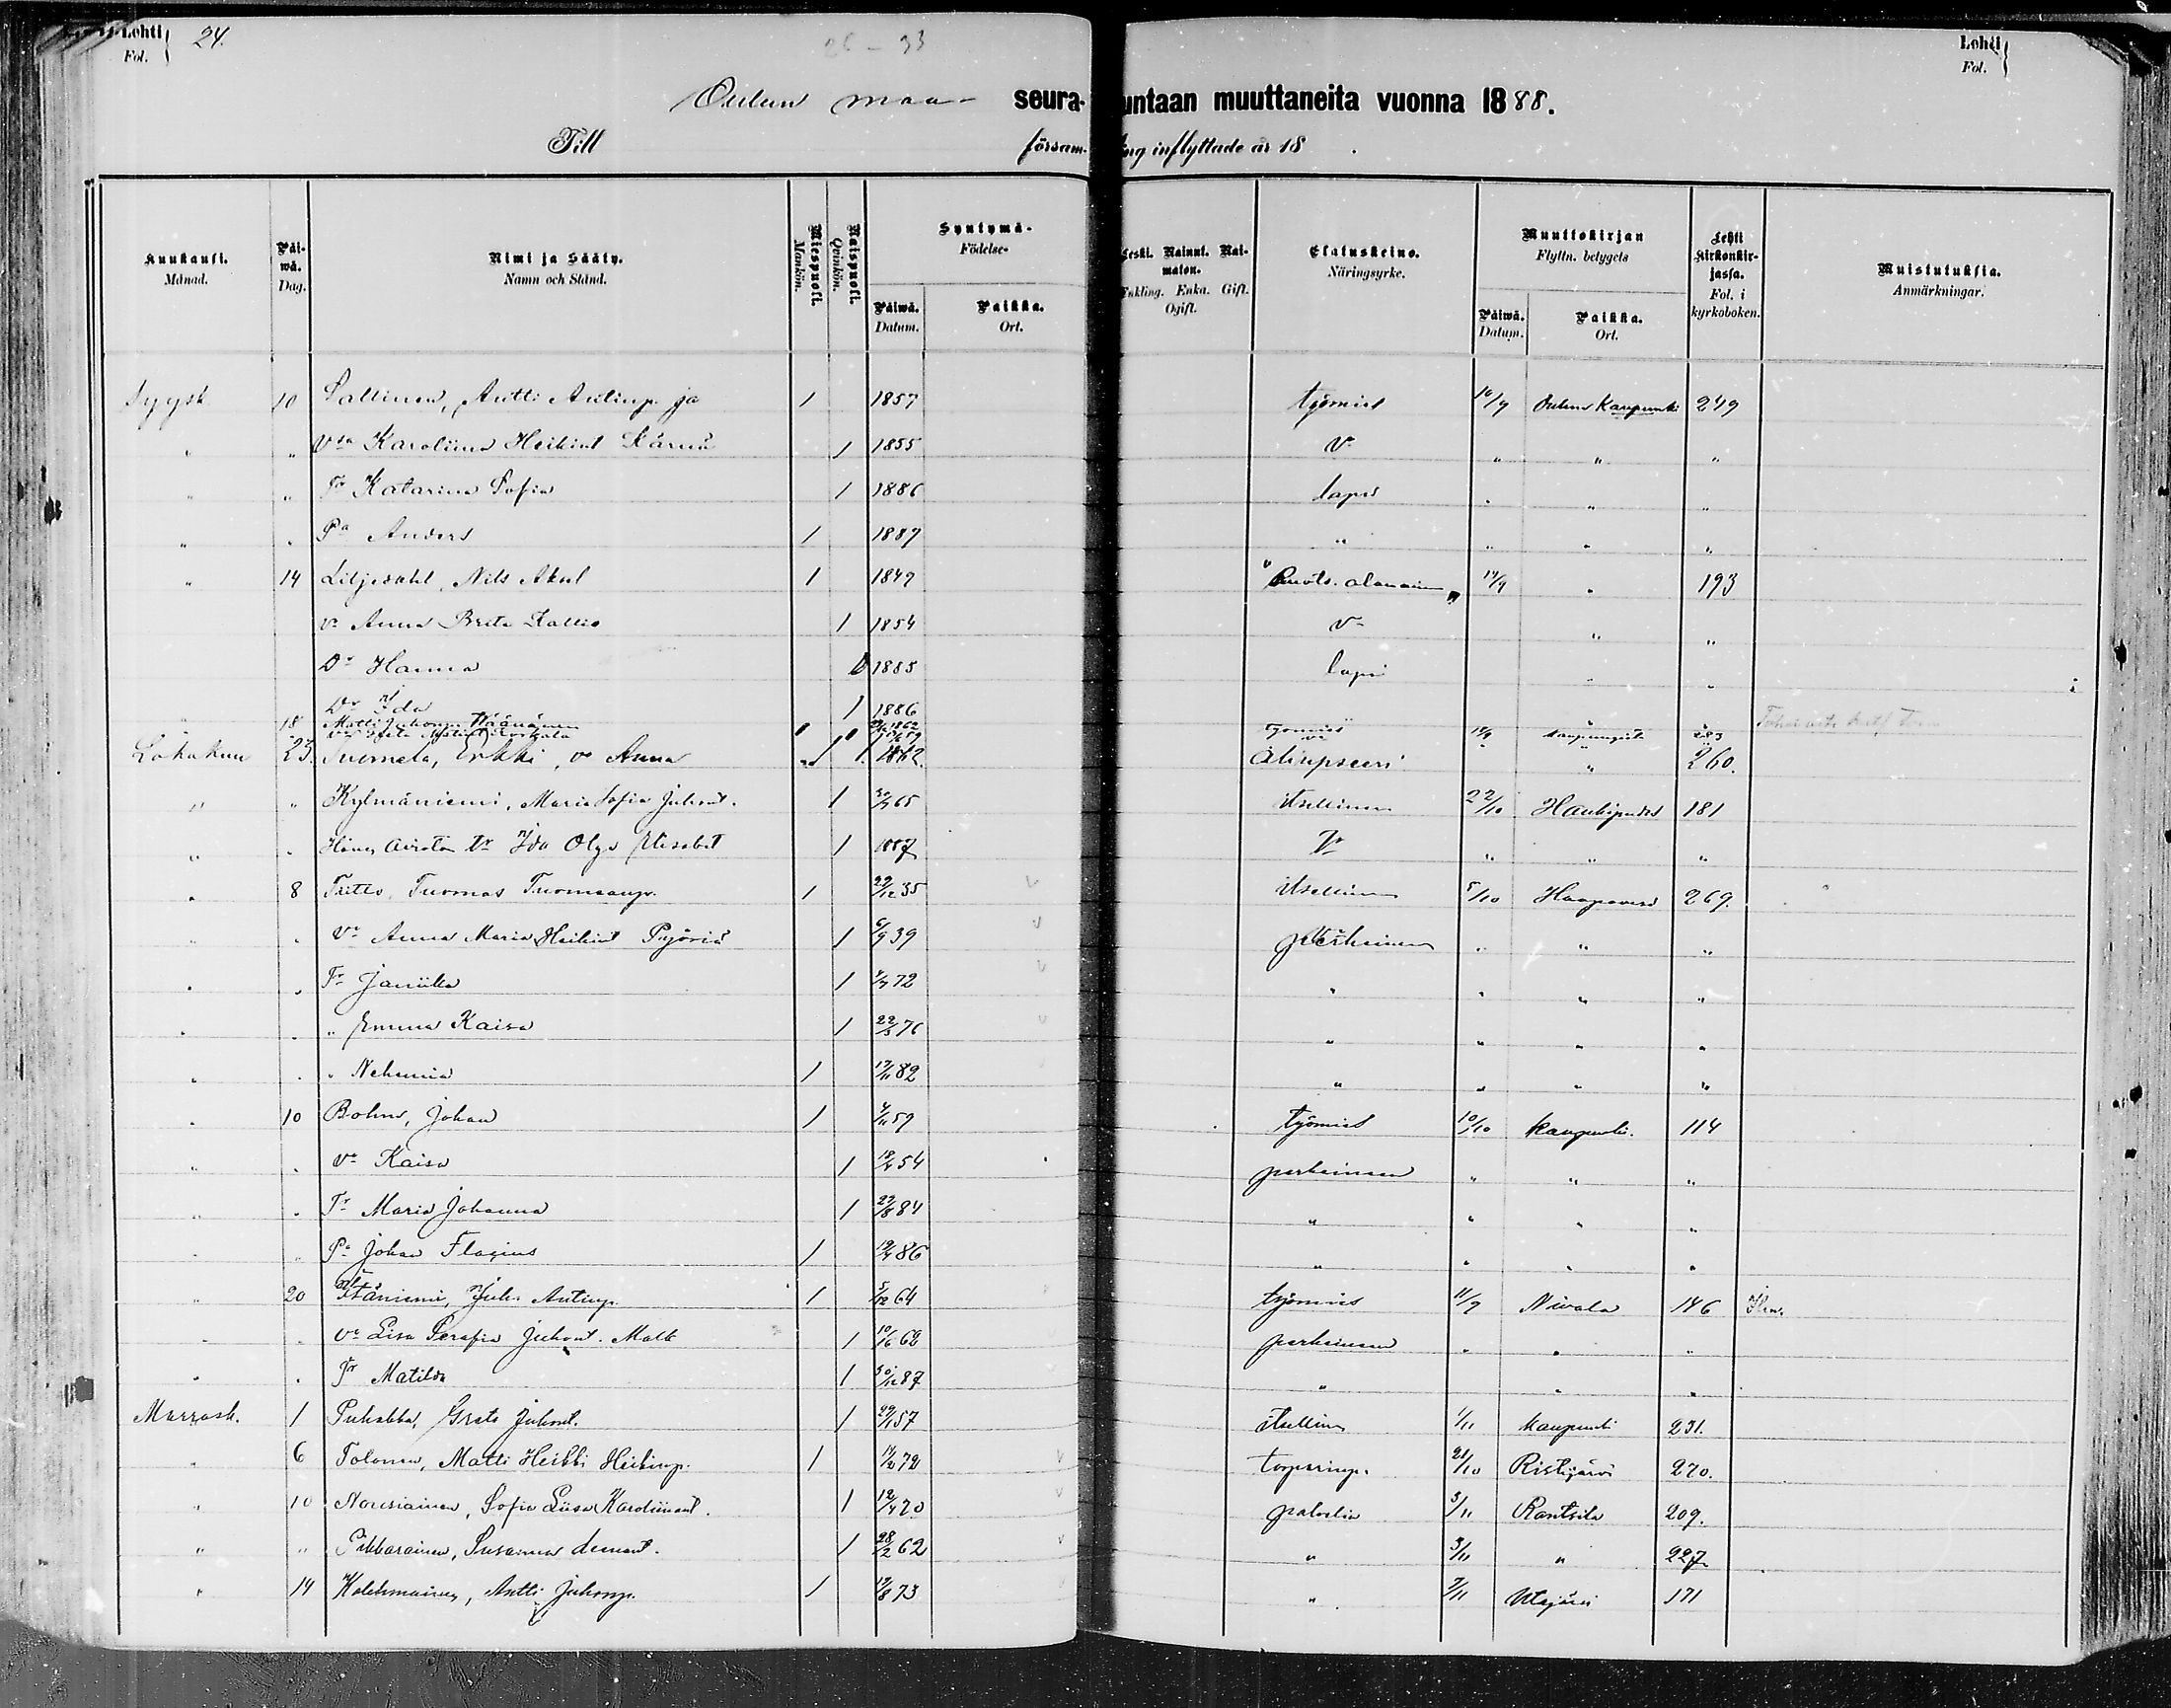 Lehti Fol. 24. 26 - 33 Lehti Fol.
Oulun maa- seura- untaan muuttaneita vuonna 1888.
Till försam- ing inflyttade år 18 .
Kuukausi. Månad. Päiwä. Dag. Nimi ja Sääty. Namn och Stånd. Miespuoli. Mankön. Naispuoli. Qvinkön. Syntymä- Födelse- Päiwä. Datum. Paikka. Ort. Leski. Nainut. Naimaton. Enkling. Enka. Gift. Ogift. Elatuskeino. Näringsyrke. Muuttokirjan Flyttn. betygets Päiwä. Datum. Paikka. Ort. Lehti Kirkonkirjassa. Fol. i kyrkoboken. Muistutuksia. Anmärkningar.
Syysk 10 Sallinen, Antti Antinp. ja 1 1857 työmies 10/9 Oulun Kaupunki 249
" " Vsa Karoliina Heikint Kärnä 1 1855 Vo " " "
" " Tr Katarina Sofia 1 1886 lapsi " " "
" " Pa Anders 1 1887 " " " "
" 14 Liljedahl, Nils Aksel 1 1849 Ruots. alamainen 14/9 " 193
vo Anna Brita Kallio 1 1854 Vo " "
Dr Hanna 1 1885 lapsi " "
" Dr Ida 1 1886
18 Matti Juhonp. Väänänen 1 1862 työmies 18/9 kaupungista 283
Lokakuu 23. Suomela, Erkki, vo Anna 1 1. 1862. Aliupseeri " 260.
" " Kylmäniemi, Maria Sofia Juhont. 1 30/9 65 itsellinen 22/10 Haukipudas 181
" " Hänen avioton tr Ida Olga Elisabet 1 1887 Tr " " "
" 8 Tuomas Tuomaanp. 1 22/12 35 itsellinen 5/10 Haapavesi 269.
" " Vo Anna Maria Heikint Pyöriä 1 6/9 39 perheineen " " "
" " Tr Janiika 1 4/7 72 " " " "
" " " Emma Kaisa 1 22/3 76 " " " "
" " " Nehemia 1 17/11 82 " " " "
" 10 Bohm, Johan 1 4/11 59 työmies 10/10 kaupunki. 114
" " Vo Kaisa 1 18/4 54 perheineen " " "
" " Tr Maria Johanna 1 22/8 84 " " " "
" " Pa Johan Flagius 1 19/4 86 " " " "
" 20 Itäniemi, Juho Antinp. 1 5/12 64 työmies 11/9 Nivala 146
" " Vo Lisa Serafia Juhont. Matt 1 10/6 62 perheineen " " "
" " Tr Matilda 1 30/12 87 " " "
Marrask. 1 Puhakka, Greta Juhont. 1 29/1 57 itsellinen 1/11 kaupunki 231.
" 6 Tolonen, Matti Heikki Heikinp. 1 72 torpparinp. 21/10 Ristijärvi 270.
" 10 Nousiainen, Sofia Liisa Karoliinant. 1 12/4 70 palvelia 3/11 Rantsila 209.
" " Pikkarainen, Susanna 1 28/2 62 " 3/11 " 227.
" 14 Kolehmainen, Antti Juhonp. 1 17/8 73 " 7/11 Utajärvi 171